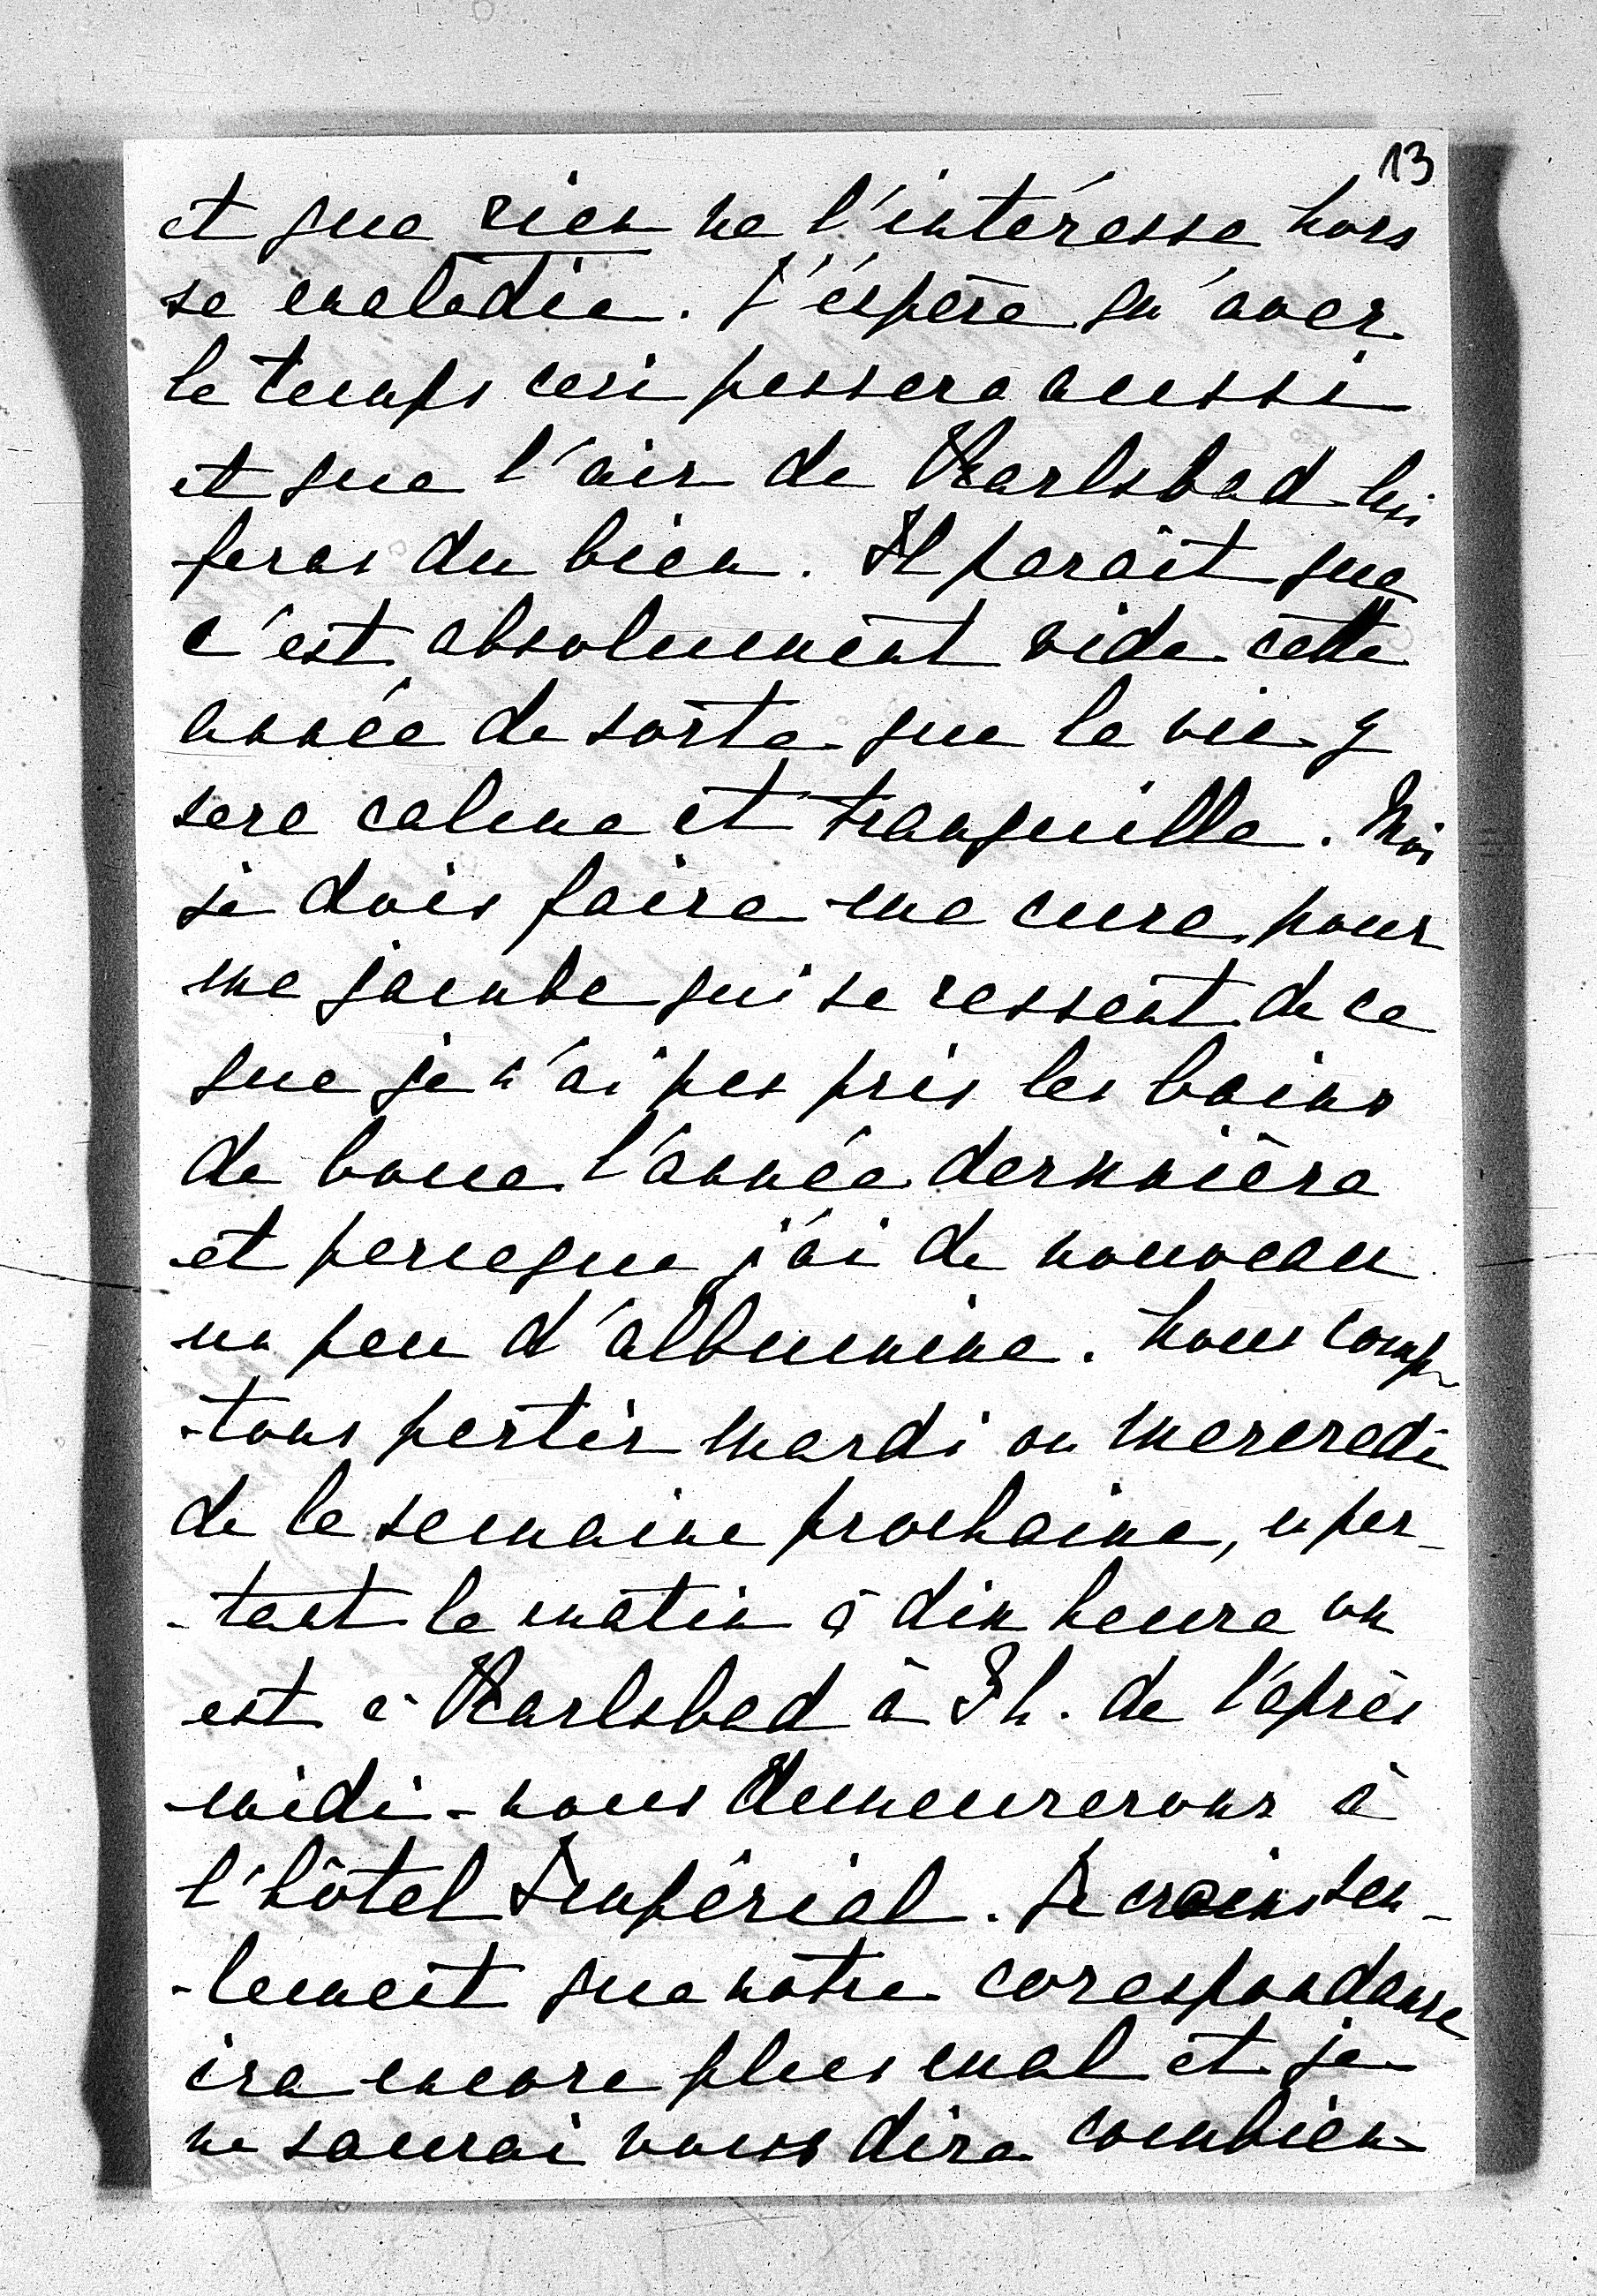 13
et que rien ne l'intéresse hors
sa maladie. J'éspère qu'avec
le temps ceci passera aussi
et que l'air de Karlsbad lui
feras du bien. Il parait que
c'est absolument vide cette
année de sorte que la vie y
sera calme et tranquille. Moi
je dois faire ma cure pour
ma jambe qui se ressent de ce
que je n'ai pas pris les bains
de boue l'année dernnière
et parceque j'ai de nouveau
un peu d'albumine. Nous comp-
-tons partir mardi ou mercredi
de la semaine prochaine, en par-
-tant le matin à dix heure on
est à Karlsbad à 3 h. de l'après
midi - nous demeurerons à
l'hôtel Impérial. Je crains seu-
-lement que notre corespondanse
ira encore plus mal et je
ne saurai vous dire combien